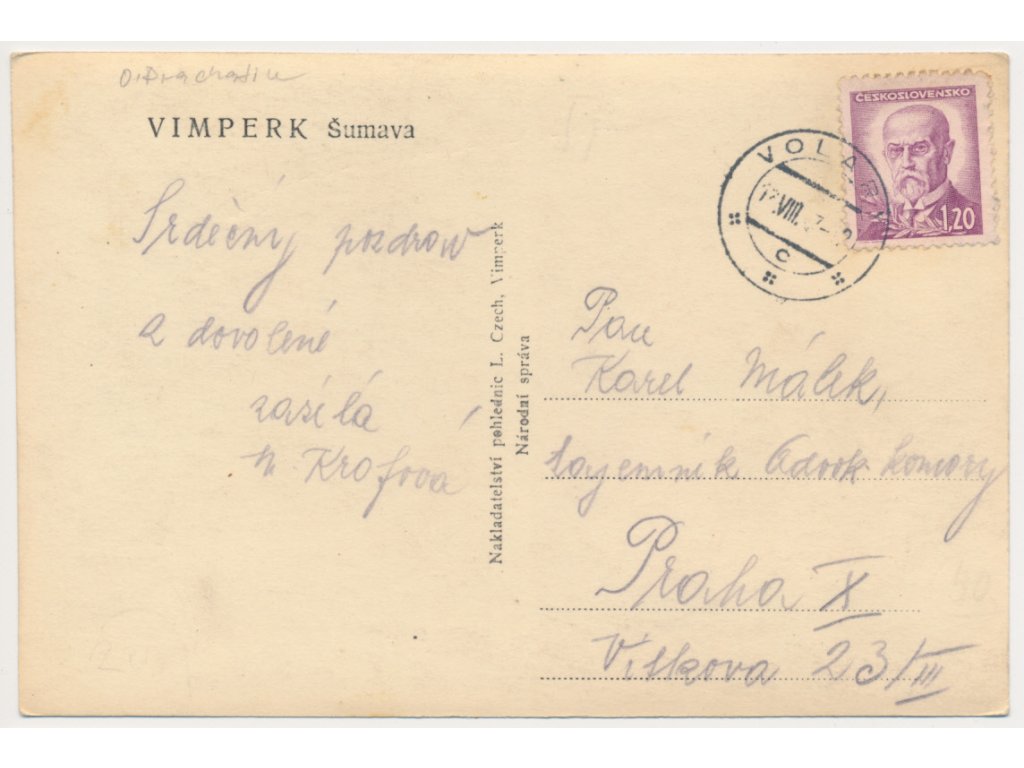 O. Prachatice
VIMPERK Šumava
Srdečný pozdrav
z dovolené
zasílá
M. Krofová
Nakladatelství pohlednic L. Czech, Vimperk
Národní správa
ČESKOSLOVENSKO
1,20
VOLARY
VIII.
C
Pan
Karel Málek,
tajemník Advok. komory
Praha X
Vítkova 23/III